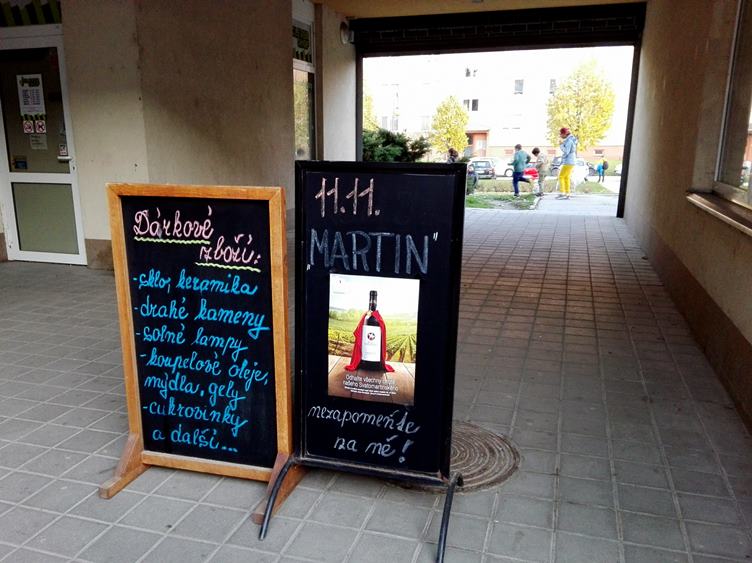 Dárkové
zboží:
- sklo, keramika
- drahé kameny
- solné lampy
- koupelové oleje,
mýdla, gely
- cukrovinky
a další...
11.11.
„MARTIN"
Odhalte všechny chutě
našeho Svatomartinského
nezapomeňte
na mě!